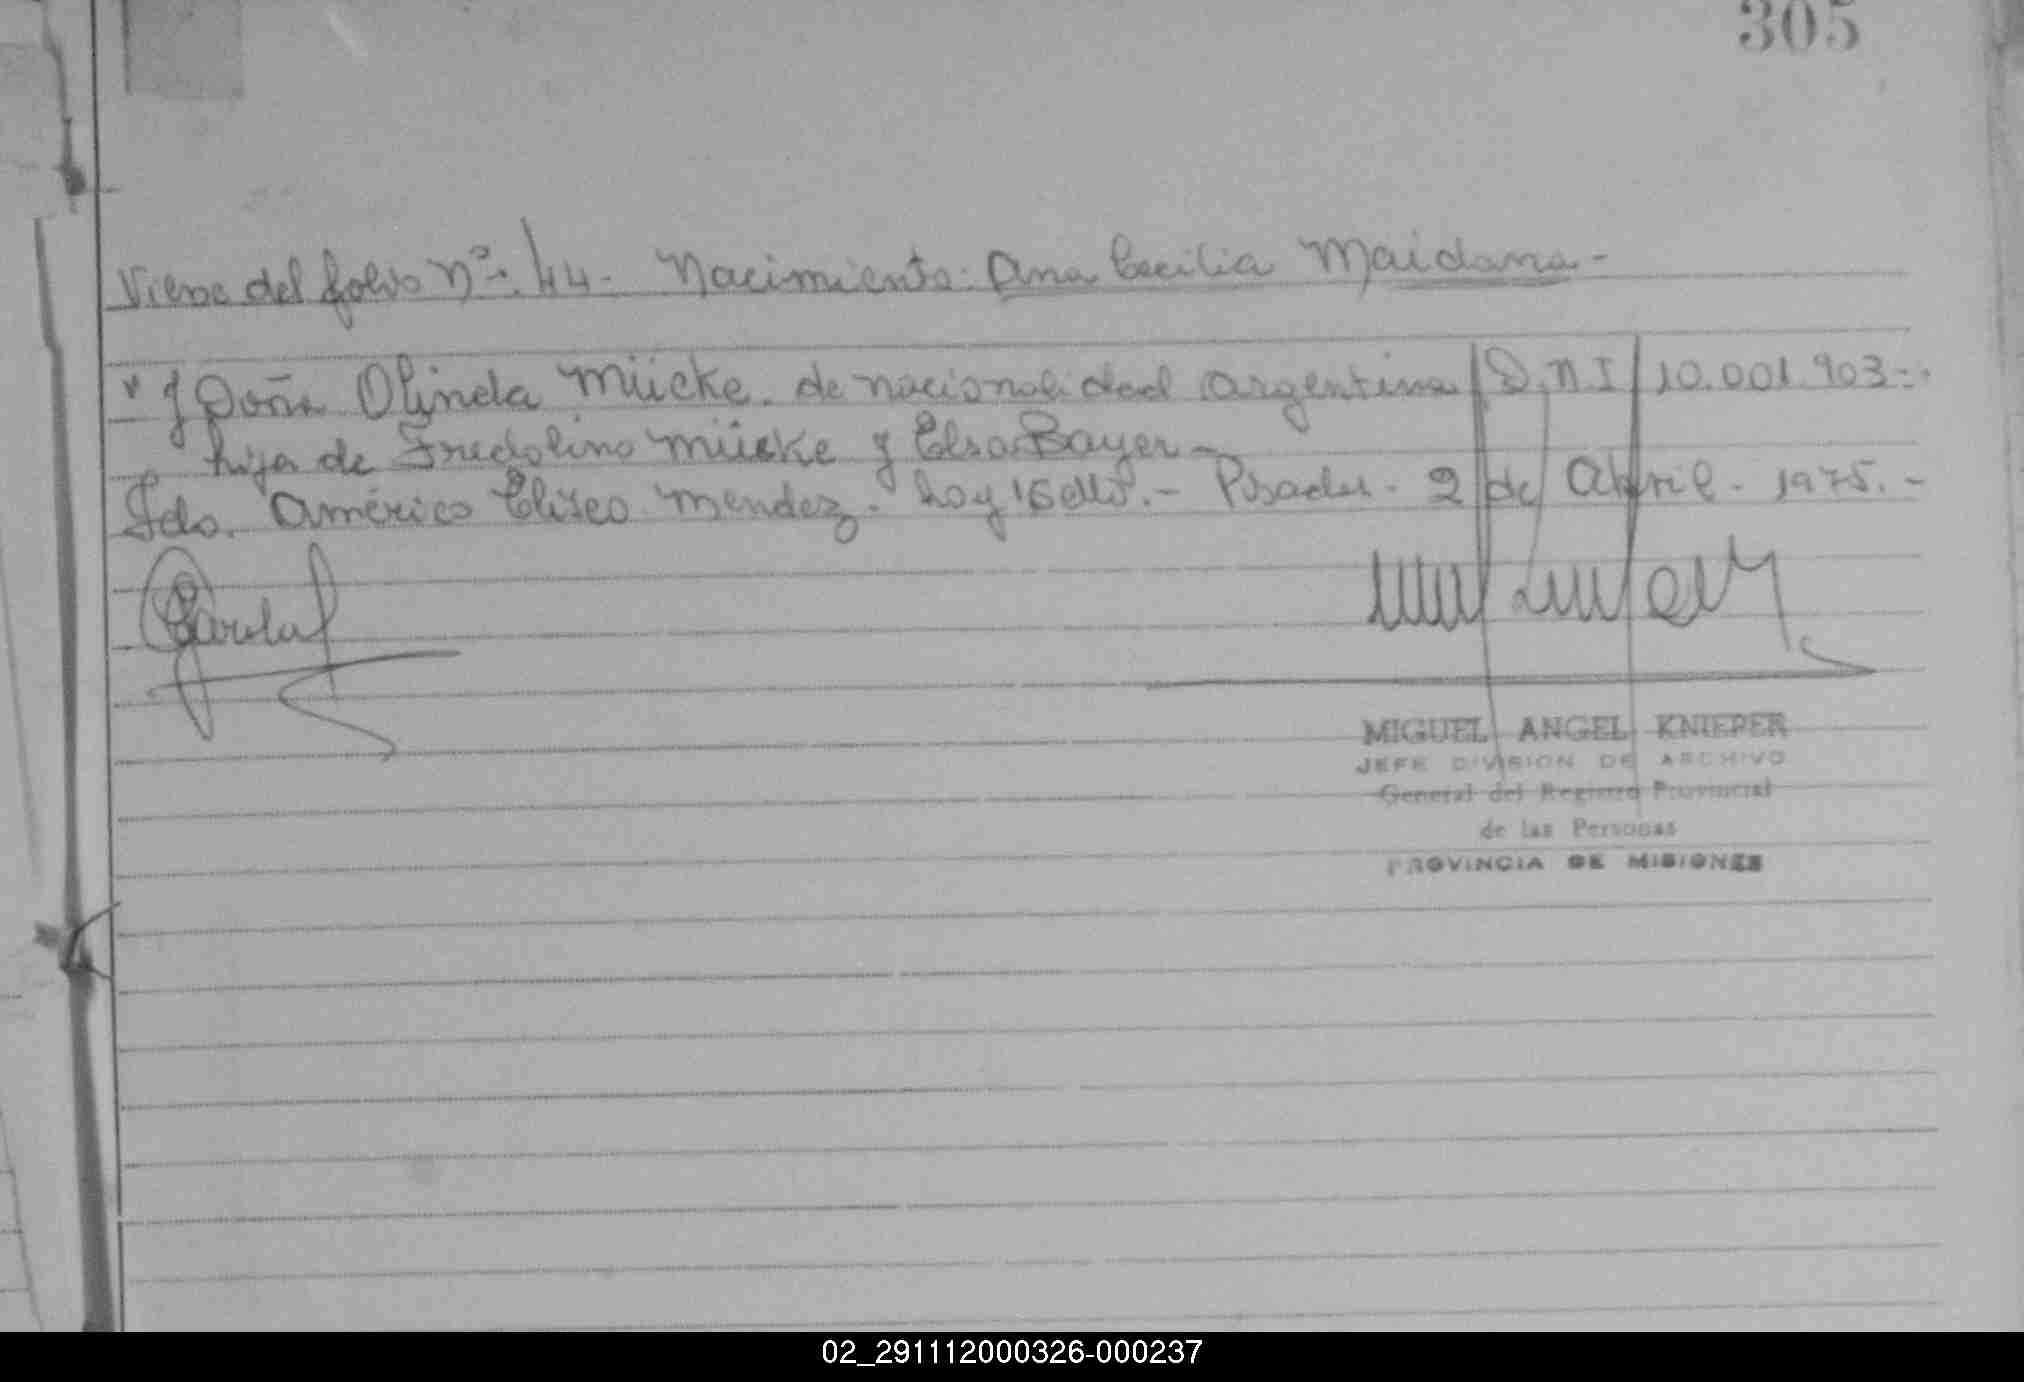 305
Viene del folio Nº: 44. Nacimiento: Ana Cecilia Maidana.-
y Doña Olinda Mücke. de nacionalidad argentina D.N.I 10.001.903.-
hija de Fredolino Mücke y Elsa Bayer.-
Fdo. Américo Eliseo Mendez. hay 1 Sello.- Posadas. 2 de Abril. 1975.-
MIGUEL ANGEL KNIEPER
JEFE DIVISION DE ARCHIVO
General del Registro Provincial
de las Personas
PROVINCIA DE MISIONES
02_291112000326-000237